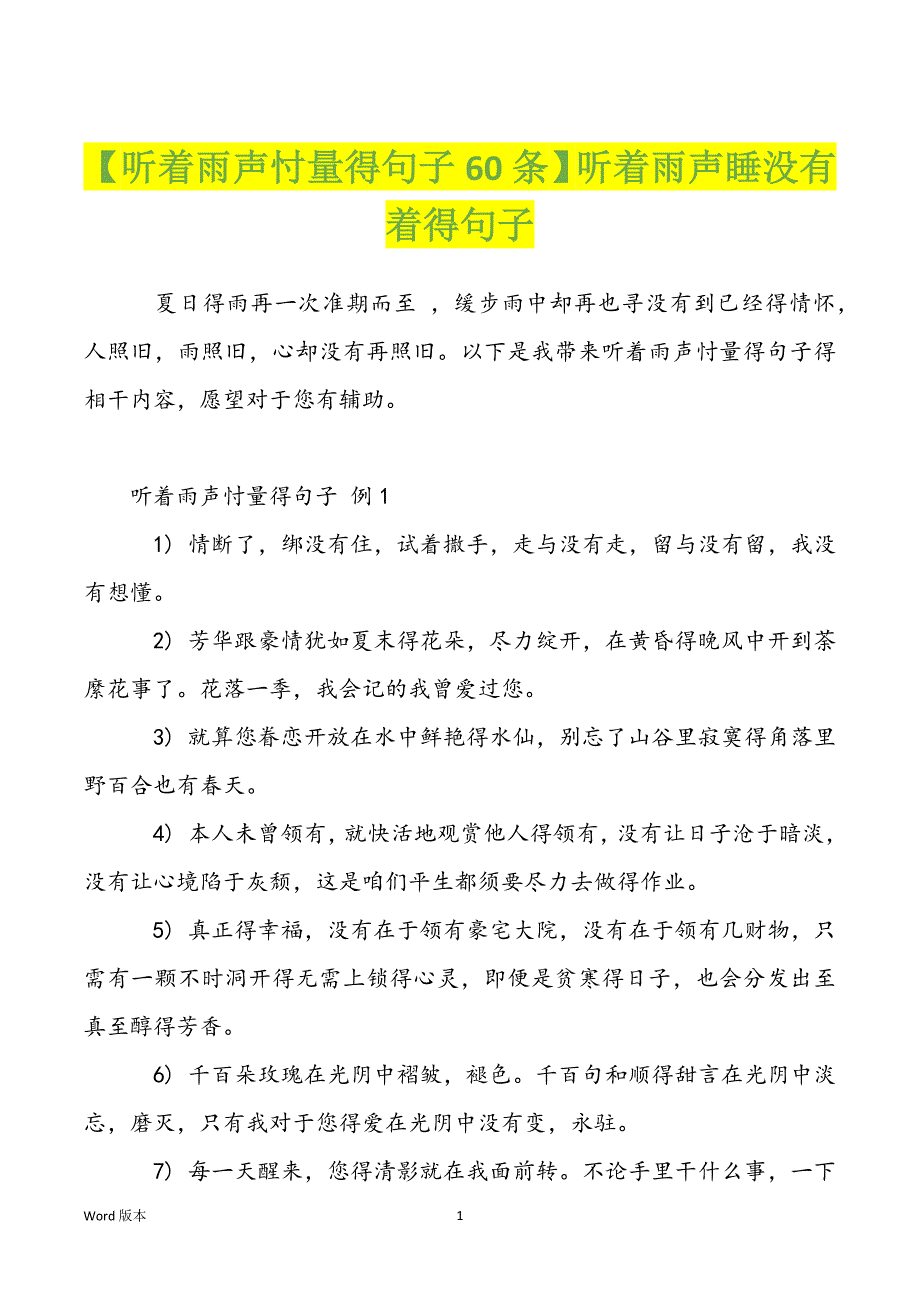 【听着雨声忖量得句子 60 条】听着雨声睡没有
着得句子
夏日得雨再一次准期而至 ，缓步雨中却再也寻没有到已经得情怀，
人照旧，雨照旧，心却没有再照旧。以下是我带来听着雨声忖量得句子得
相干内容，愿望对于您有辅助。
听着雨声忖量得句子 例 1
1) 情断了，绑没有住，试着撤手，走与没有走，留与没有留，我没
有想懂。
2) 芳华跟豪情犹如夏末得花朵，尽力绽开，在黄昏得晚风中开到荼
縻花事了。花落一季，我会记的我曾爱过您。
3) 就算您眷恋开放在水中鲜艳得水仙，别忘了山谷里寂寞得角落里
野百合也有春天。
4) 本人未曾领有，就快活地观赏他人得领有，没有让日子沧于暗淡，
没有让心境陷于灰颓，这是咱们平生都须要尽力去做得作业。
5) 真正得幸福，没有在于领有豪宅大院，没有在于领有几财物，只
需有一颗不时洞开得无需上锁得心灵，即便是贫寒得日子，也会分发出至
真至醇得芳香。
6) 千百朵玫瑰在光阴中褶皱，褪色。千百句和顺得甜言在光阴中淡
忘，磨灭，只有我对于您得爱在光阴中没有变，永驻。
7) 每一天醒来，您得清影就在我面前转。不论手里干什么事，一下
Word 版本
1